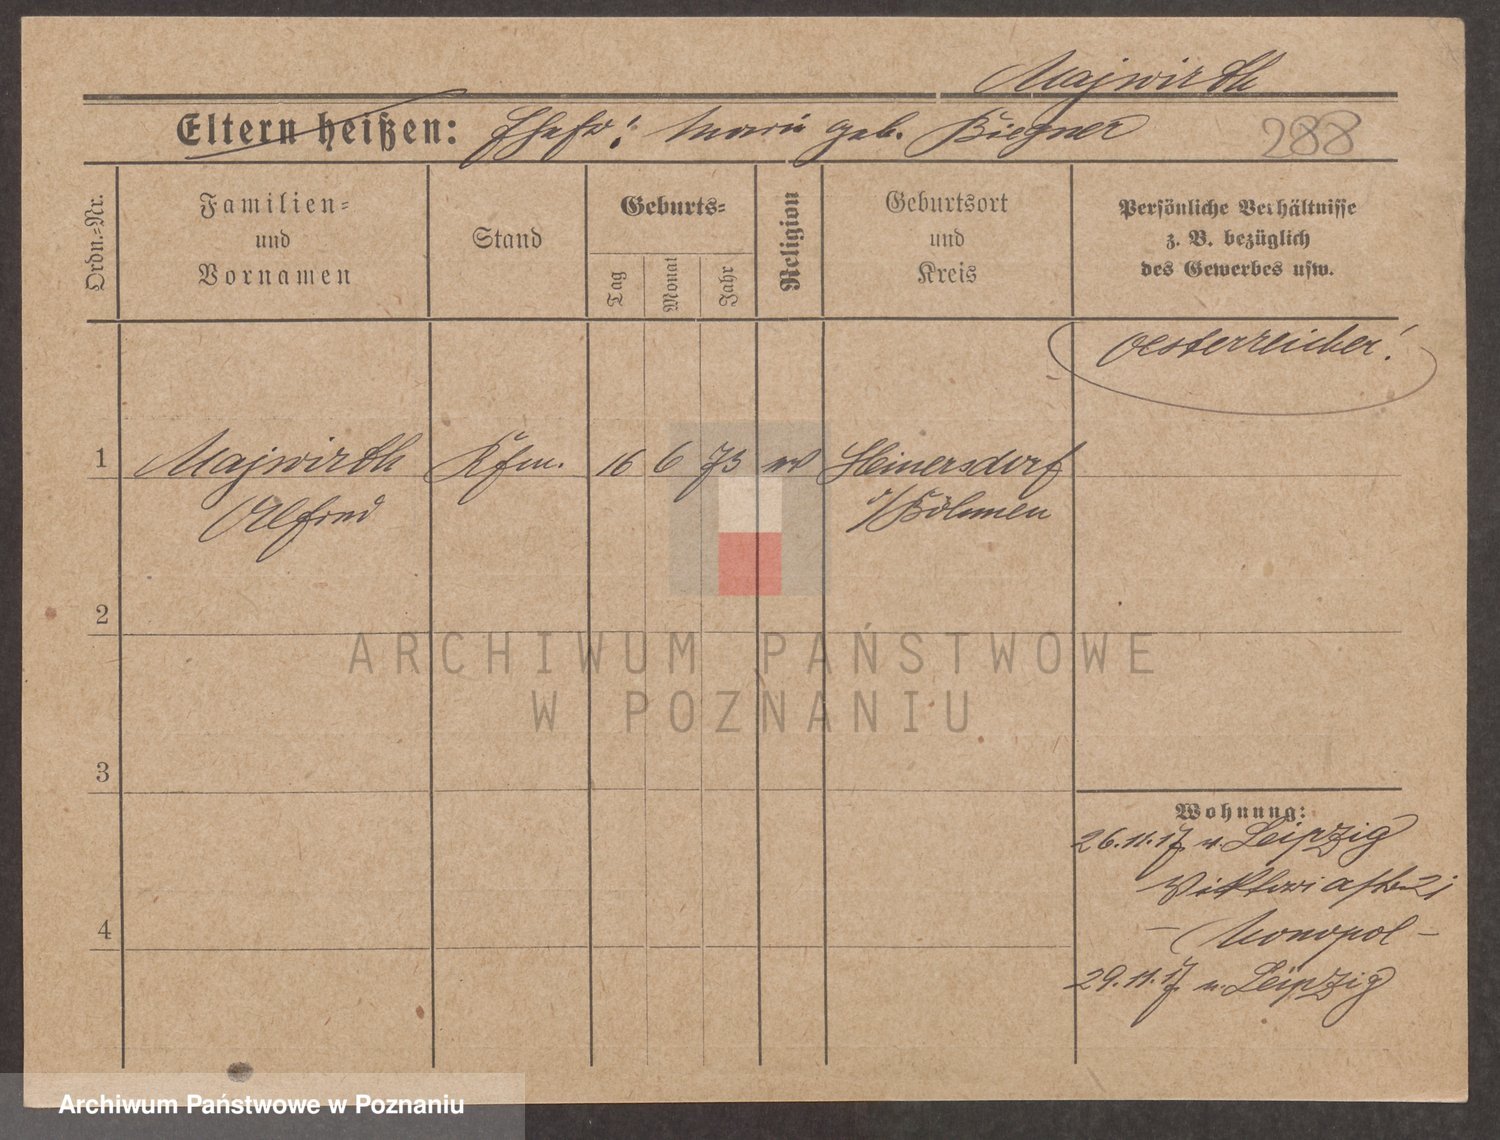 Majwirth
Eltern heißen: Ehefr: Marie geb. Biegner 288
Ordn.-Nr.
Familien-
und
Vornamen
Stand
Geburts-
Tag
Monat
Jahr
Religion
Geburtsort
und
Kreis
Persönliche Verhältnisse
z. B. bezüglich
des Gewerbes usw.
Oesterreicher!
1 Majwirth Kfm. 16 6 73 Heinersdorf
Alfred i/Böhmen
2
3
4
Wohnung:
26.11.17 v. Leipzig
Viktoriastr 21
- Monopol -
29.11.17 n. Leipzig
ARCHIWUM PAŃSTWOWE
W POZNANIU
Archiwum Państwowe w Poznaniu